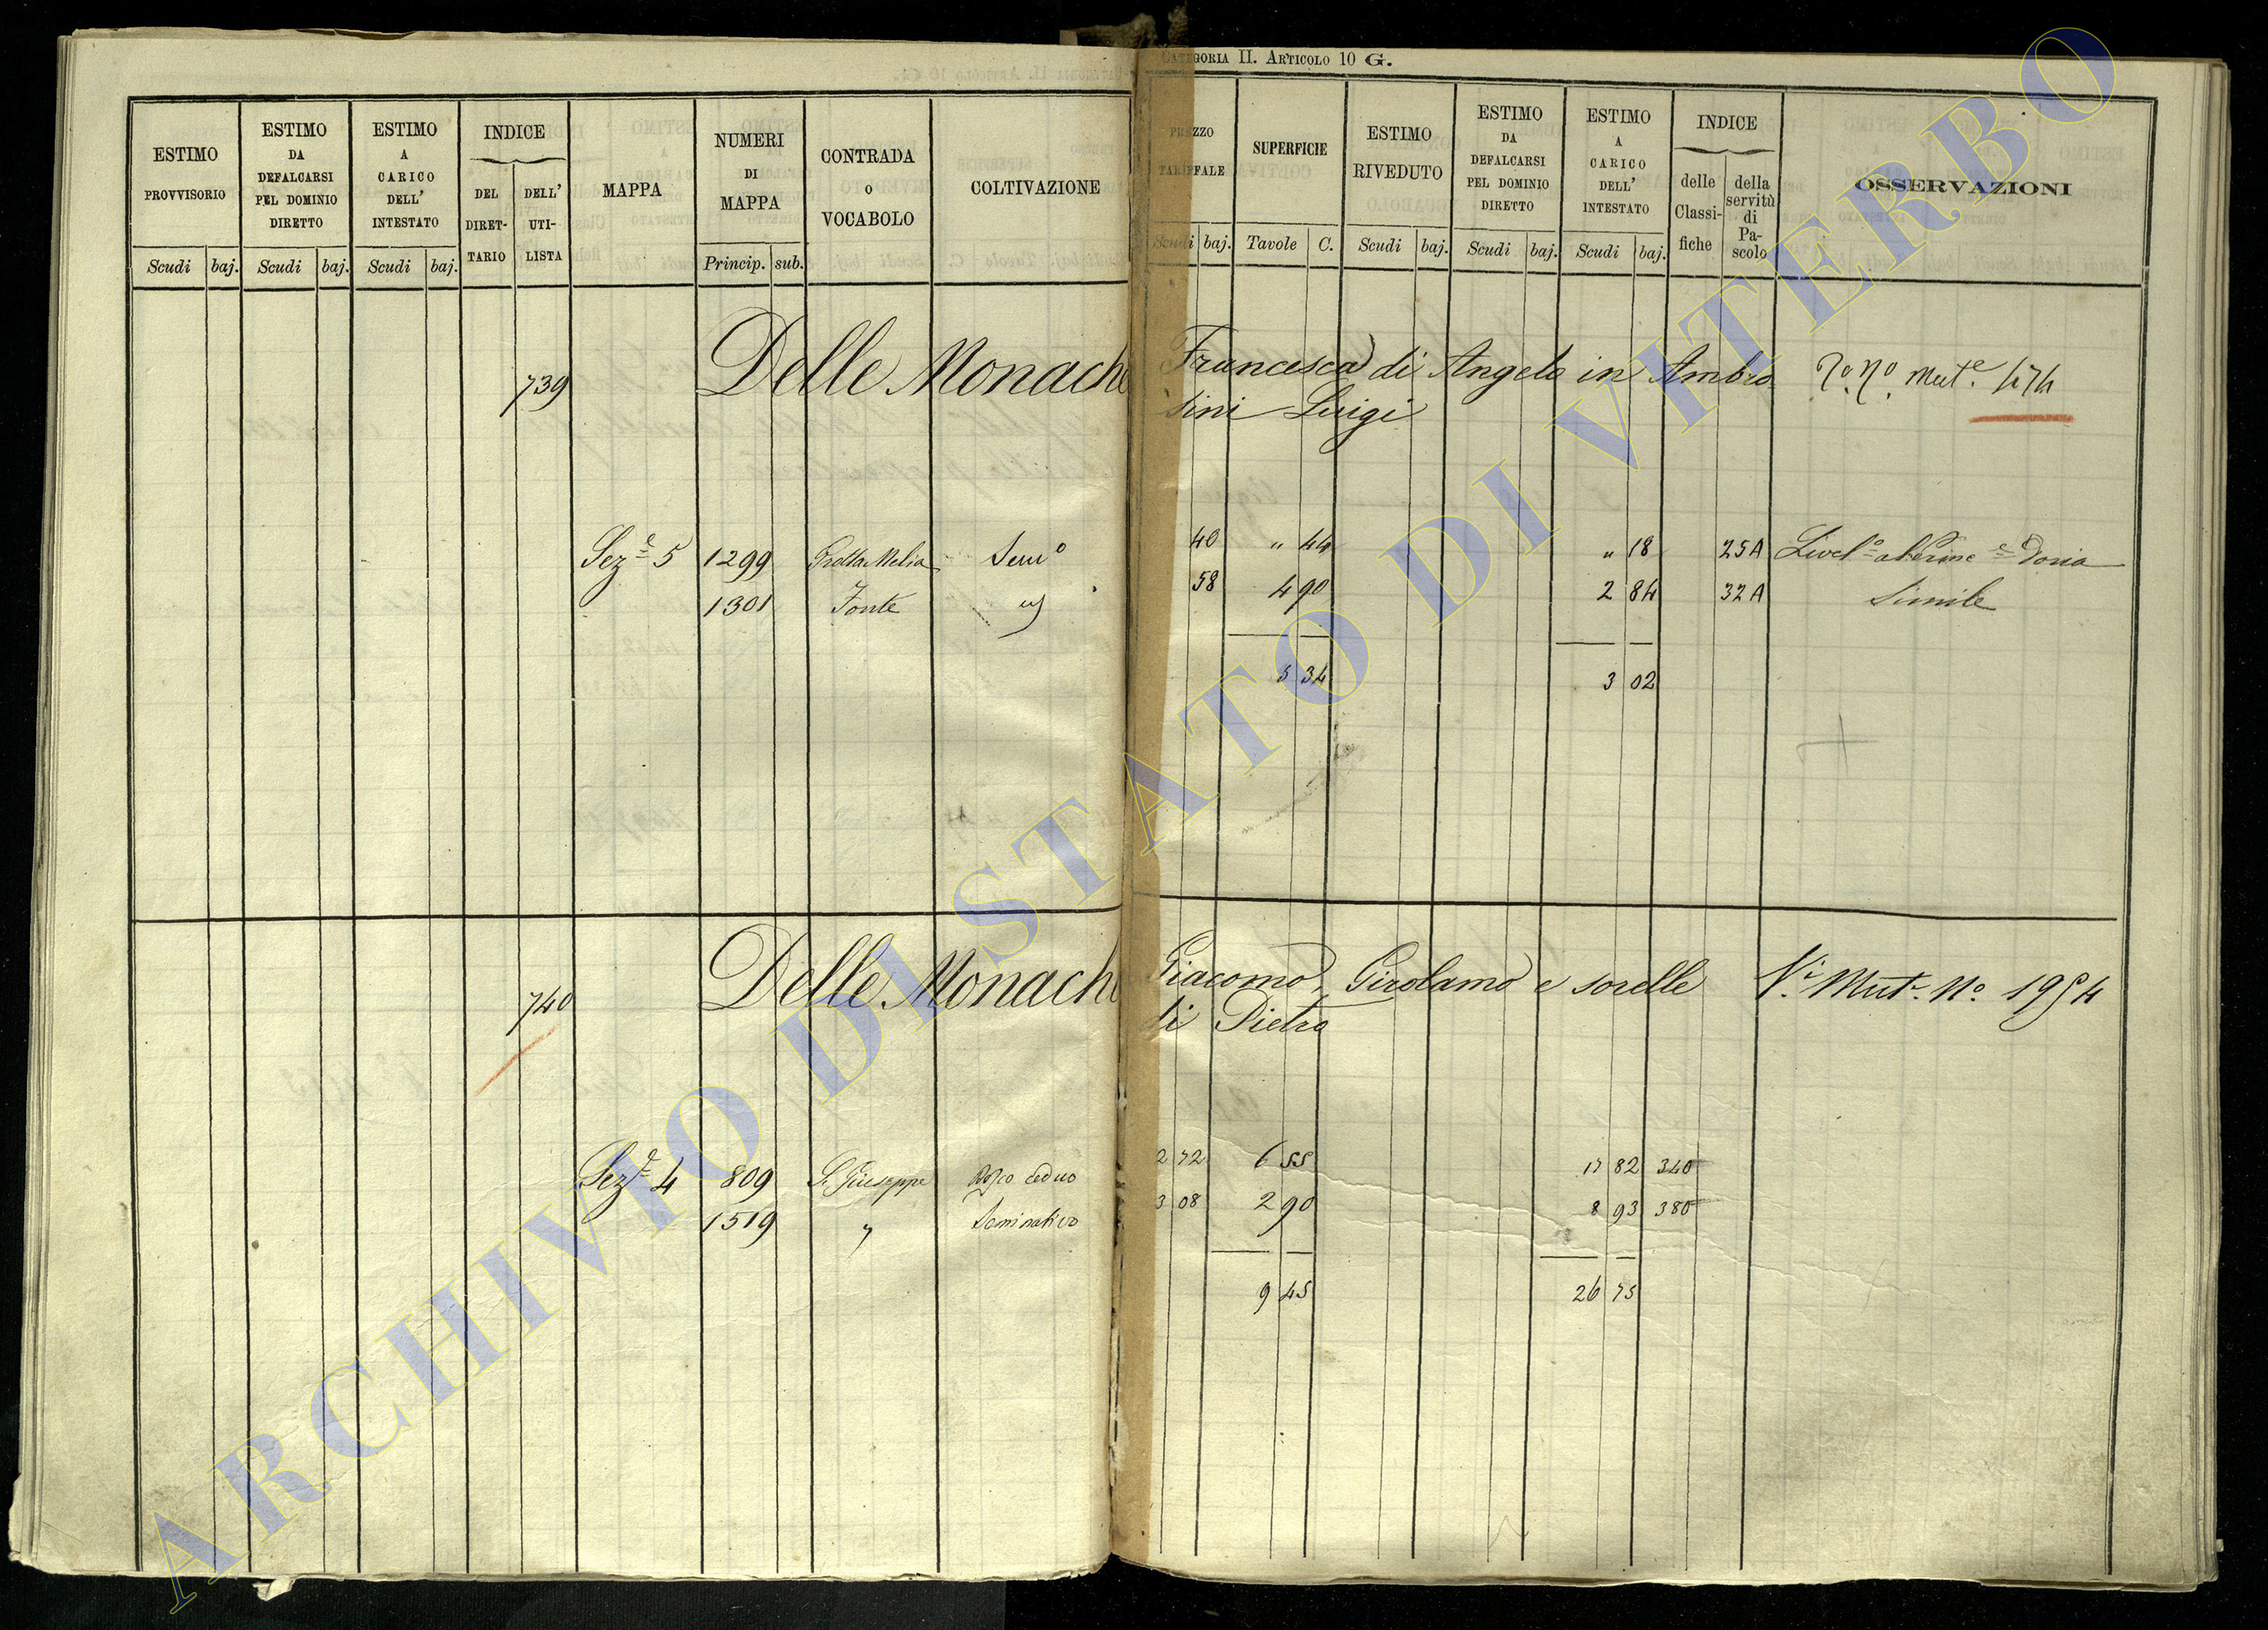 CATEGORIA II. ARTICOLO 10 G.
ESTIMO PROVVISORIO
ESTIMO DA DEFALCARSI PEL DOMINIO DIRETTO
ESTIMO A CARICO DELL' INTESTATO
INDICE
DEL DIRET-TARIO
DELL' UTI-LISTA
MAPPA
NUMERI DI MAPPA
CONTRADA O VOCABOLO
COLTIVAZIONE
PREZZO TARIFFALE
SUPERFICIE
ESTIMO RIVEDUTO
ESTIMO DA DEFALCARSI PEL DOMINIO DIRETTO
ESTIMO A CARICO DELL' INTESTATO
INDICE
delle Classi-fiche
della servitù di Pa-scolo
OSSERVAZIONI
Scudi baj. Scudi baj. Scudi baj. Princip. sub. Scudi baj. Tavole C. Scudi baj. Scudi baj. Scudi baj.
739 Delle Monache Francesca di Angelo in Ambro
sini Luigi
Sez.e 5 1299 Grotta Melia Semo 40 " 44 " 18 25A
1301 Fonte 58 4 90 2 84 32A Simile
5 34 3 02
740 Delle Monache Giacomo, Girolamo e sorelle Vi Mut. No 1954
di Pietro
Sez.e 4 809 S. Giuseppe Bosco ceduo 2 72 6 55 17 82 340
1519 " Seminativo 3 08 2 90 8 93 380
9 45 26 75
ARCHIVIO DI STATO DI VITERBO